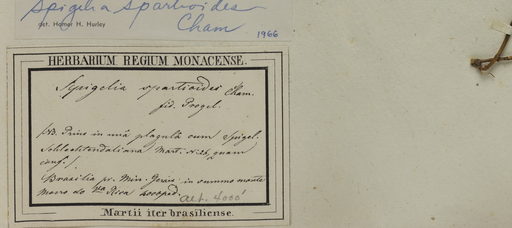 Spigelia spartioides
Cham
det. Homer H. Hurley
1966
HERBARIUM REGIUM MONACENSE.
Spigelia spartioides Cham.
fid. Progel.
NB. Prius in una plagula cum Spigel.
Schlechtendaliana Mart. quam
conf.
Brasilia pr. Min. Geraës in summo monte
Morro do Va Rica 4000 ped.
alt. 4000'
Martii iter brasiliense.